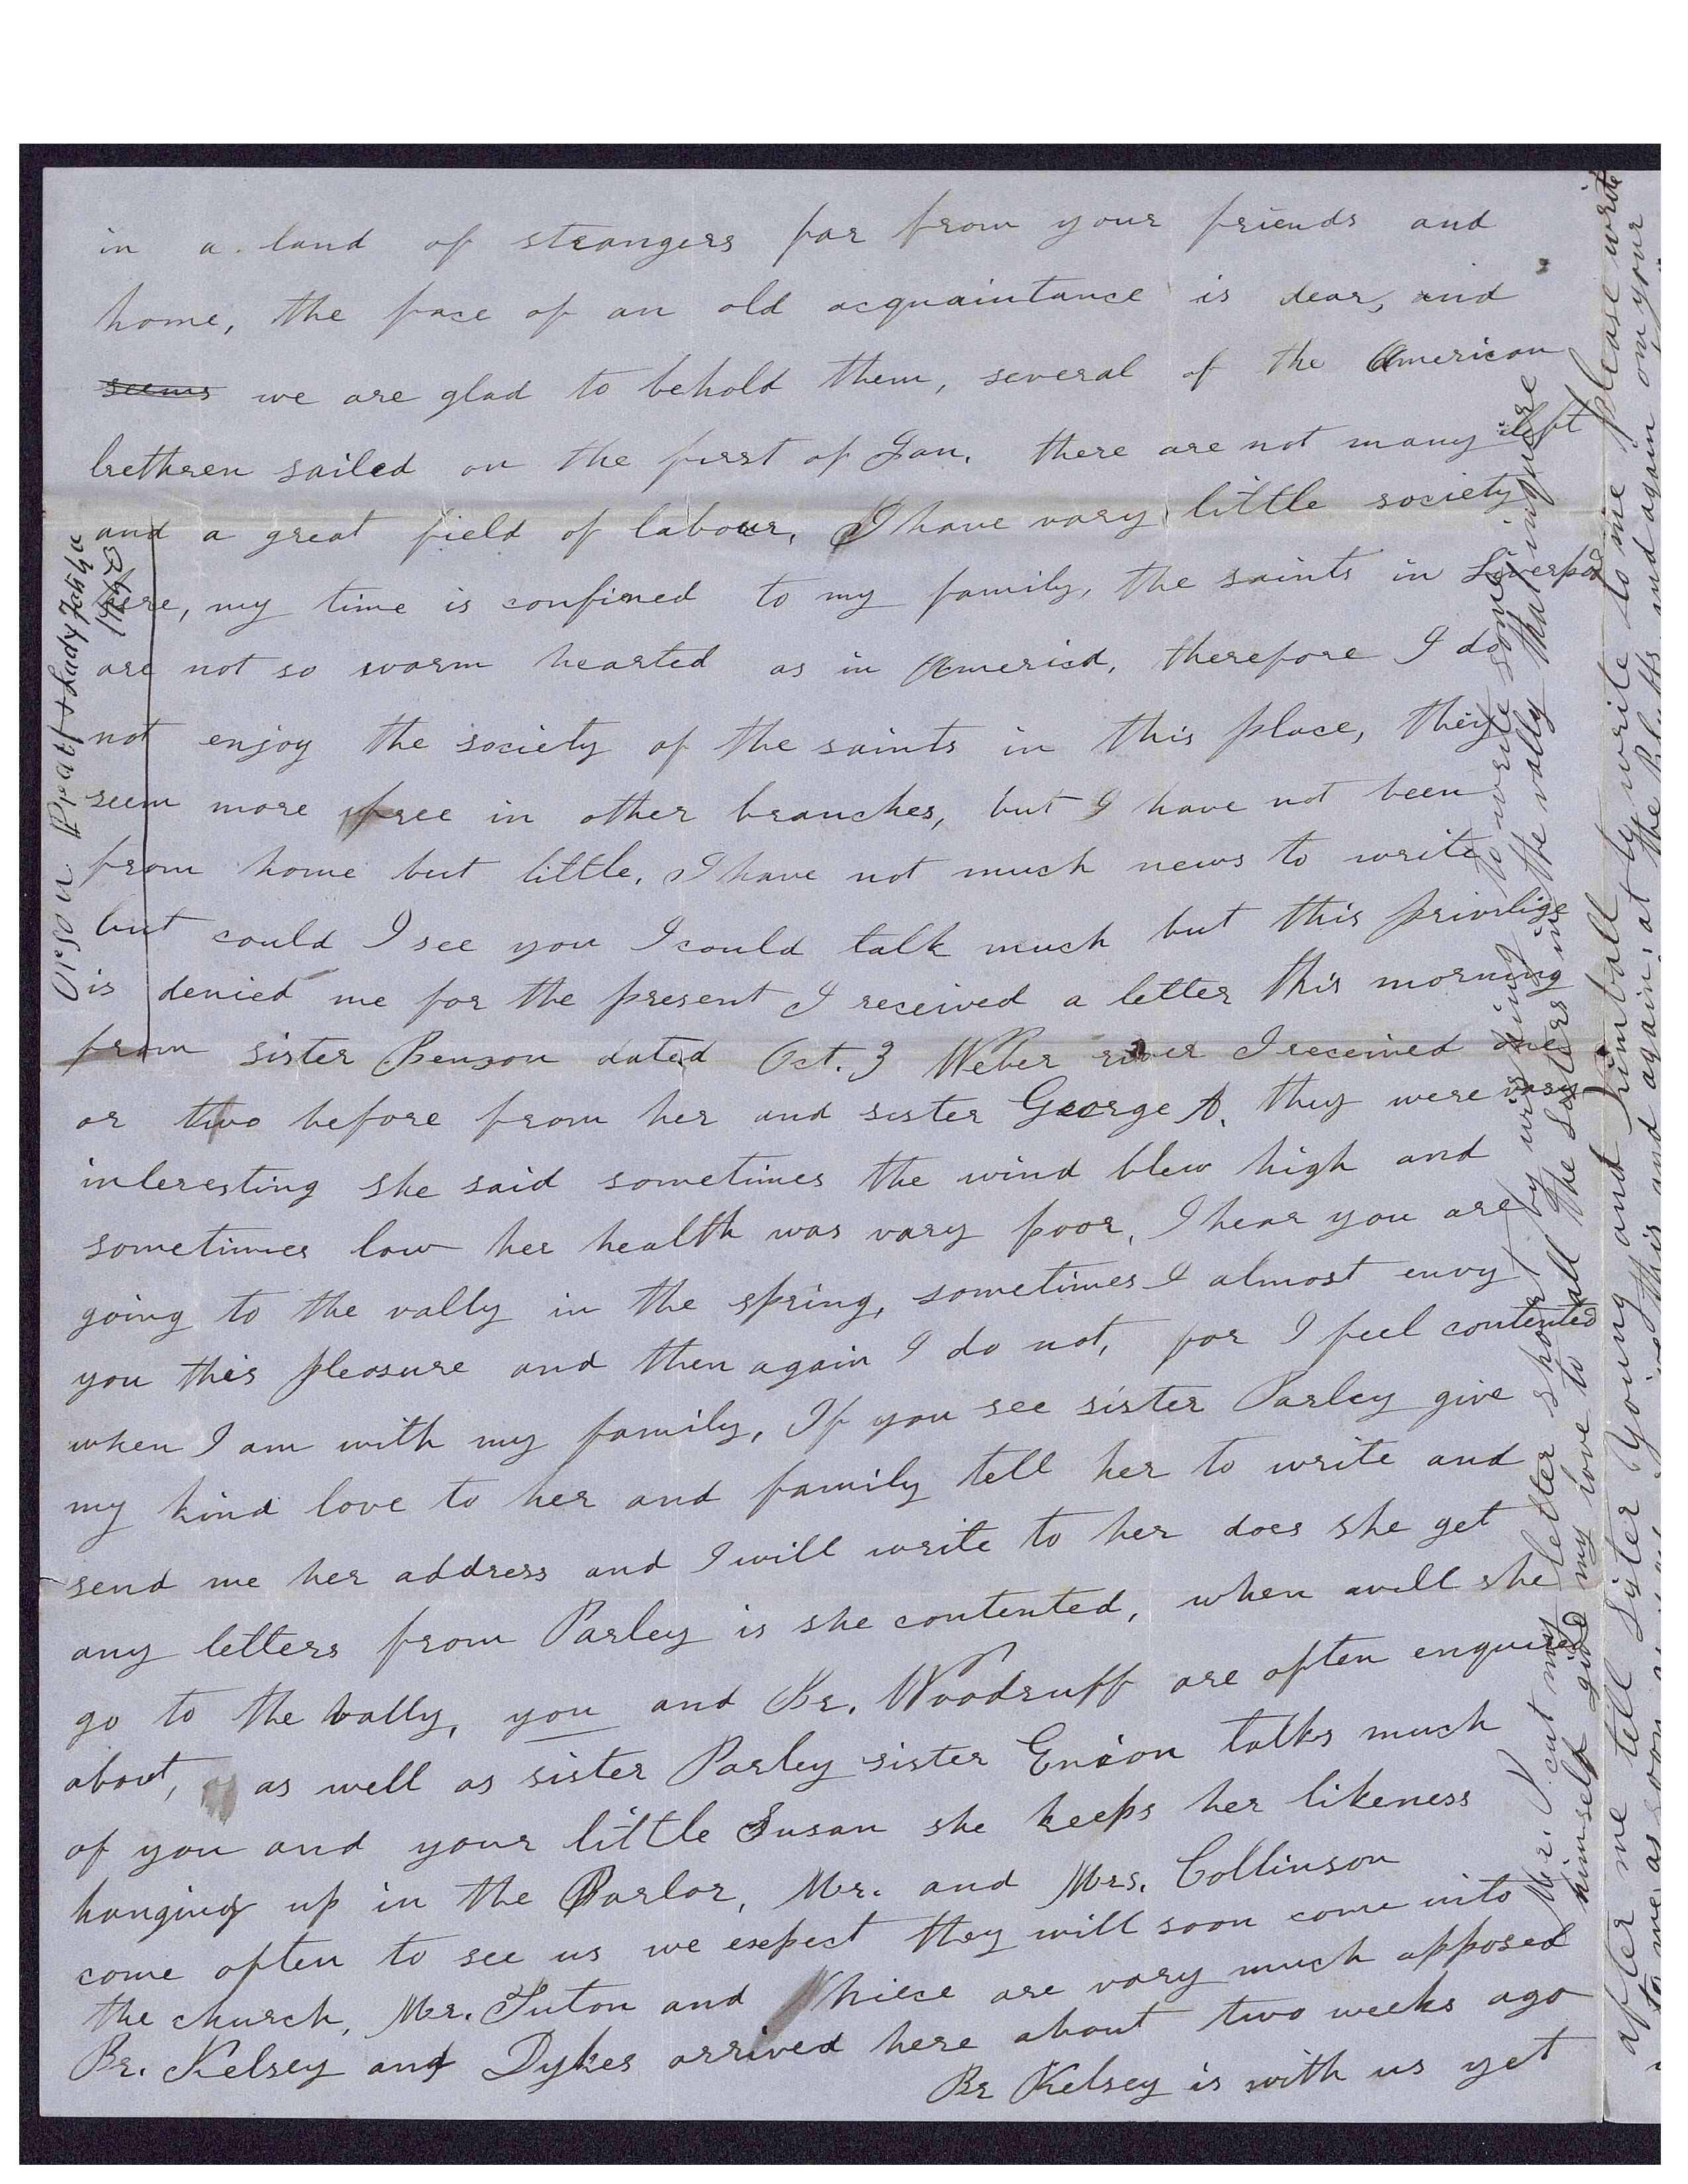 in a land of strangers far from your friends and
home, the face of an old acquaintance is dear, and
seems we are glad to behold them, several of the American
brethren sailed on the first of Jan. there are not many left
and a great field of labour, I have vary little society
here, my time is confined to my family, the saints in Liverpool
are not so warm hearted as in America, therefore I do
not enjoy the society of the saints in this place, they
seem more free in other branches, but I have not been
from home but little, I have not much news to write
but could I see you I could talk much but this privilige
is denied me for the present I received a letter this morning
from sister Benson dated Oct. 3 Weber river I received one
or two before from her and sister George A. they were vary
interesting she said sometimes the wind blew high and
sometimes low her health was vary poor, I hear you are
going to the vally in the spring, sometimes I almost envy
you this pleasure and then again I do not, for I feel contented
when I am with my family, If you see sister Parley give
my kind love to her and family tell her to write and
send me her address and I will write to her does she get
any letters from Parley is she contented, when will she
go to the vally, you and Br. Woodruff are often enquired
about, as well as sister Parley sister Enion talks much
of you and your little Susan she keeps her likeness
hanging up in the Parlor, Mr. and Mrs. Collinson
come often to see us we expect they will soon come into
the church, Mr. Tuton and Niece are vary much opposed
Br. Kelsey and Dykes arrived here about two weeks ago
Br Kelsey is with us yet
Orson Pratt & Lady
Mr. P. cut my letter short by wishing to write some
himself give my love to all the sisters in the vally that inquire
after me tell Sister Young and Kimball to write to me please write
to me as soon as you this and again, at the Bluffs and again on your